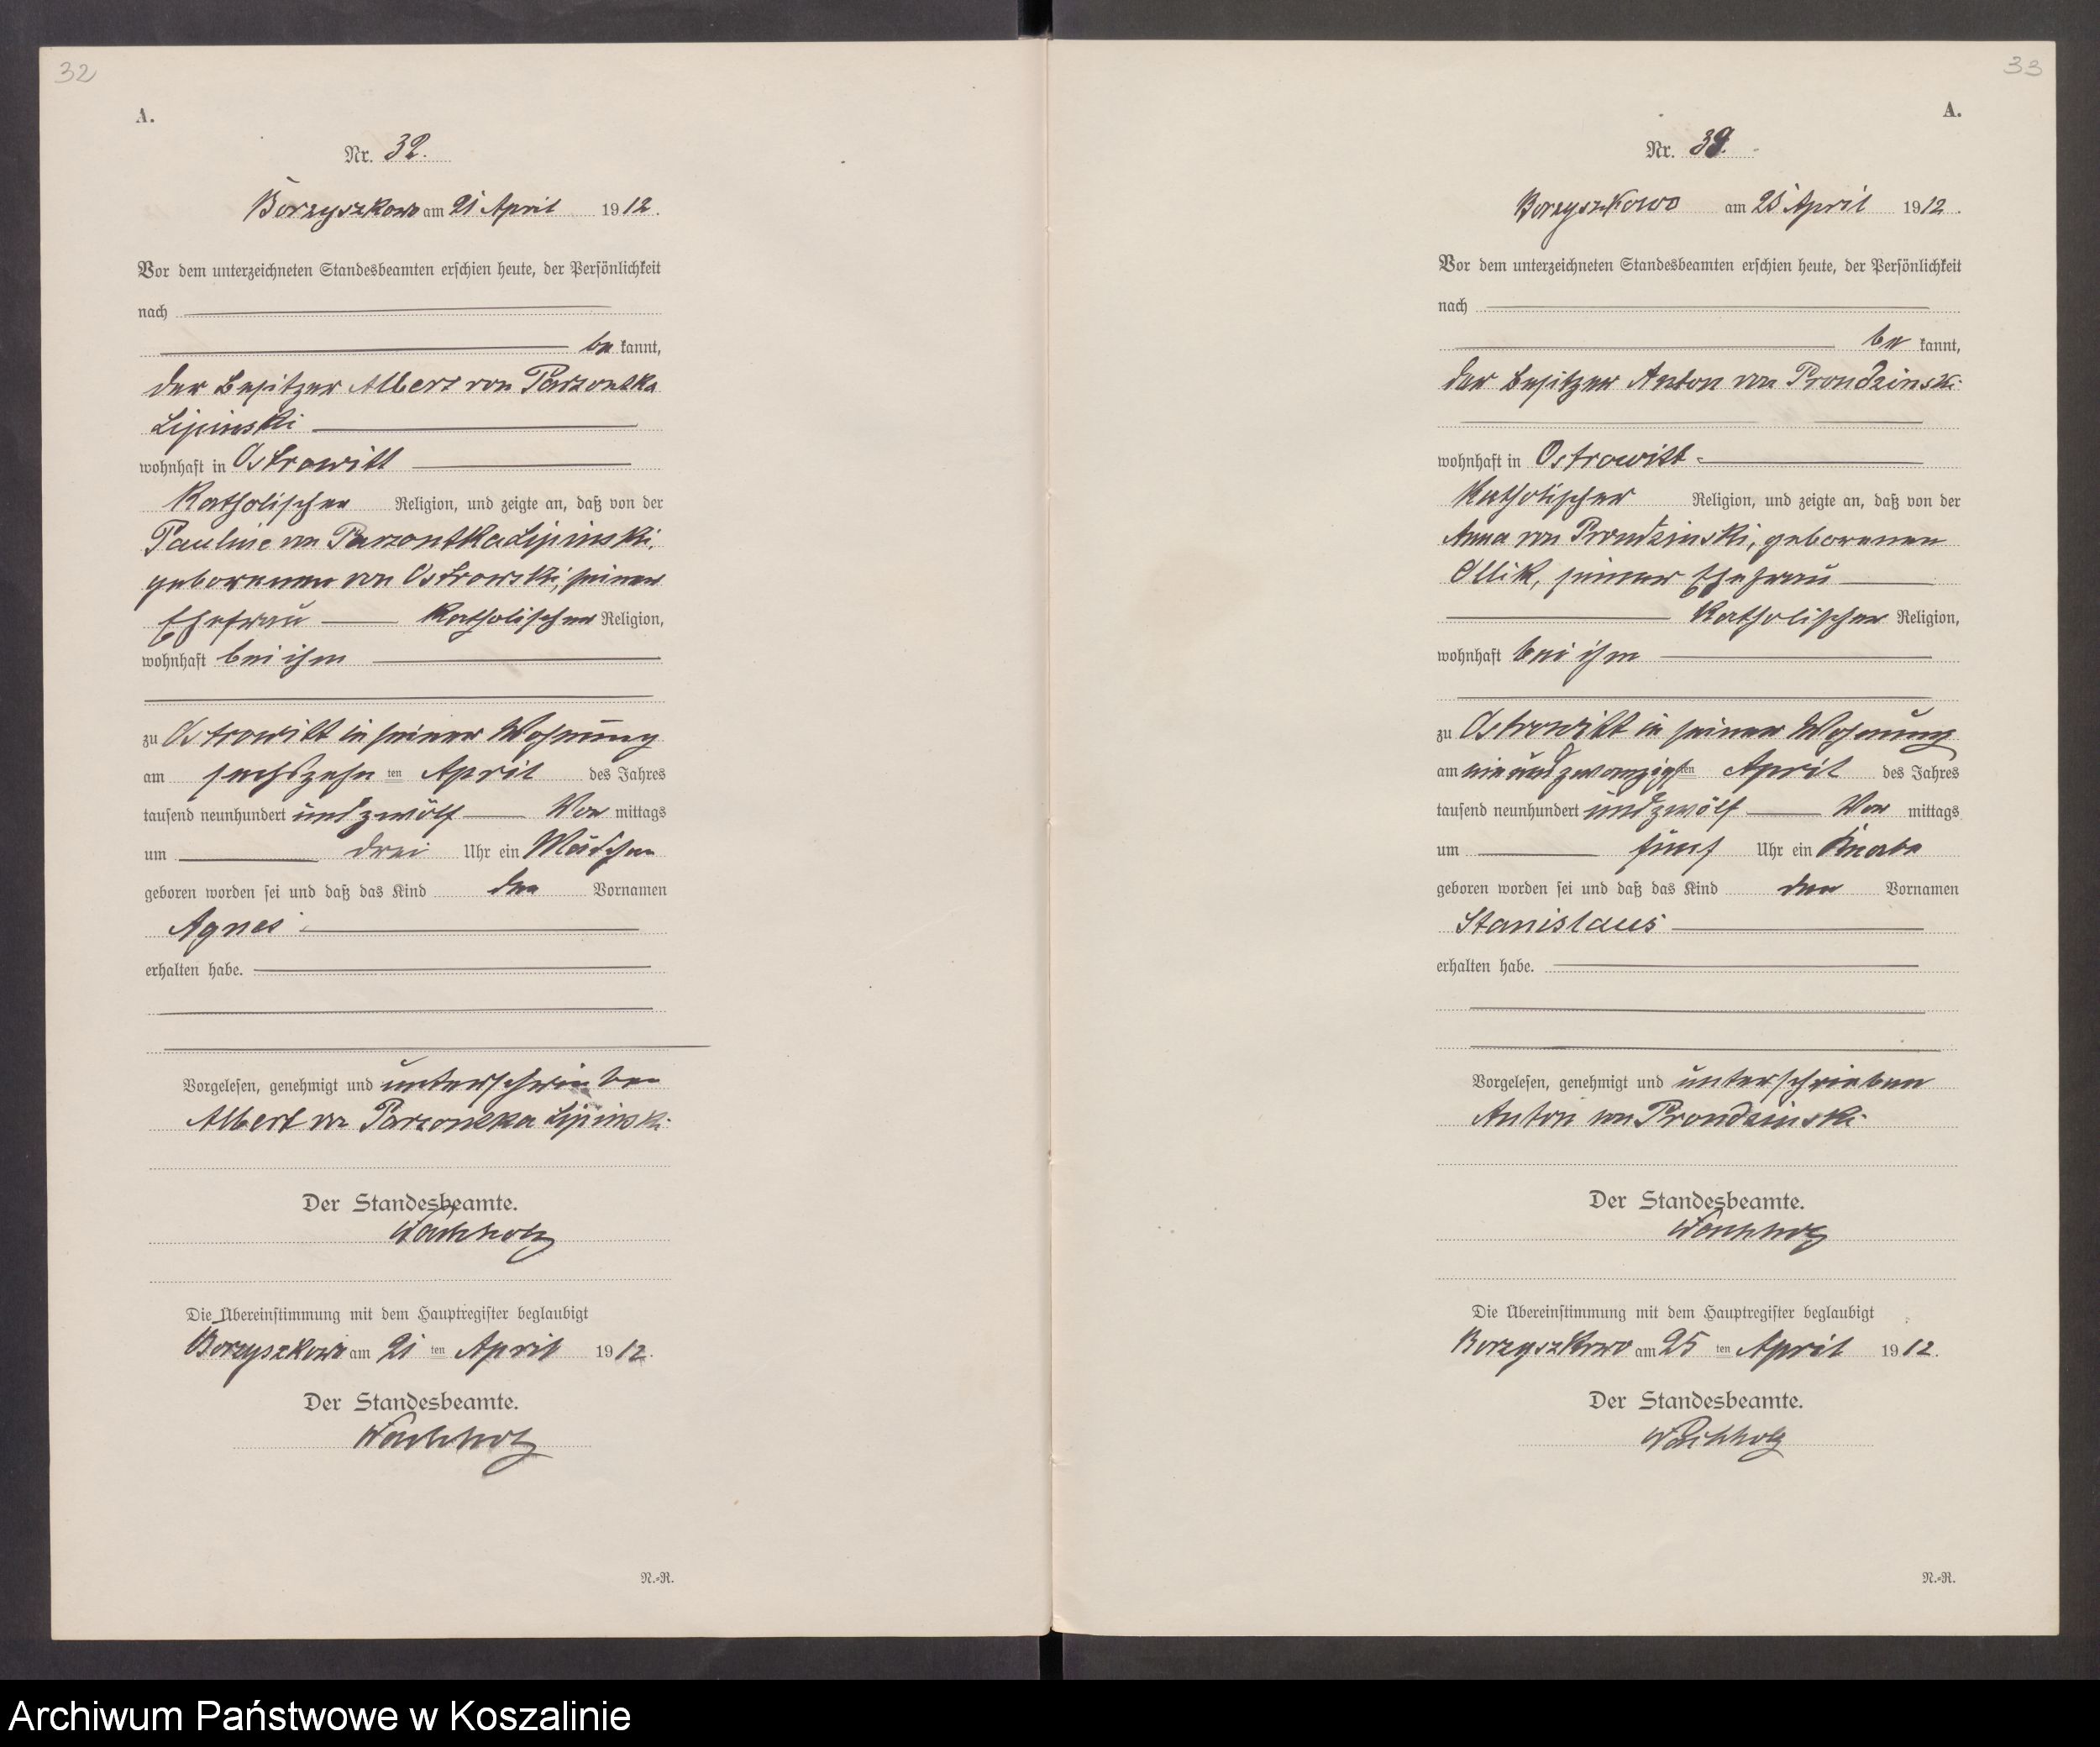 32
A.
Nr. 32.
Borzyszkowo am 21 April 1912.
Vor dem unterzeichneten Standesbeamten erschien heute, der Persönlichkeit
nach
be kannt,
der Besitzer Albert von Parzontka
Lipinski
wohnhaft in Ostrowitt
Katholischer Religion, und zeigte an, daß von der
Pauline von Parzontka Lipinski,
geborenen von Ostrowski, seiner
Ehefrau Katholischer Religion,
wohnhaft bei ihm
zu Ostrowitt in seiner Wohnung
am sechszehn ten April des Jahres
tausend neunhundert und zwölf Vor mittags
um drei Uhr ein Mädchen
geboren worden sei und daß das Kind den Vornamen
Agnes
erhalten habe.
Vorgelesen, genehmigt und unterschrieben
Albert von Parzontka Lipinski
Der Standesbeamte.
Wachholz
Die Übereinstimmung mit dem Hauptregister beglaubigt
Borzyszkowo am 21 ten April 1912.
Der Standesbeamte.
Wachholz
N.-R.
33
A.
Nr. 33.
Borzyszkowo am 25 April 1912.
Vor dem unterzeichneten Standesbeamten erschien heute, der Persönlichkeit
nach
be kannt,
der Besitzer Anton von Prondzinski
wohnhaft in Ostrowitt
Katholischer Religion, und zeigte an, daß von der
Anna von Prondzinski, geborenen
Ollik, seiner Ehefrau
Katholischer Religion,
wohnhaft bei ihm
zu Ostrowitt in seiner Wohnung
am ein und zwanzigsten April des Jahres
tausend neunhundert und zwölf Vor mittags
um fünf Uhr ein Knabe
geboren worden sei und daß das Kind den Vornamen
Stanislaus
erhalten habe.
Vorgelesen, genehmigt und unterschrieben
Anton von Prondzinski
Der Standesbeamte.
Wachholz
Die Übereinstimmung mit dem Hauptregister beglaubigt
Borzyszkowo am 25 ten April 1912.
Der Standesbeamte.
Wachholz
N.-R.
Archiwum Państwowe w Koszalinie